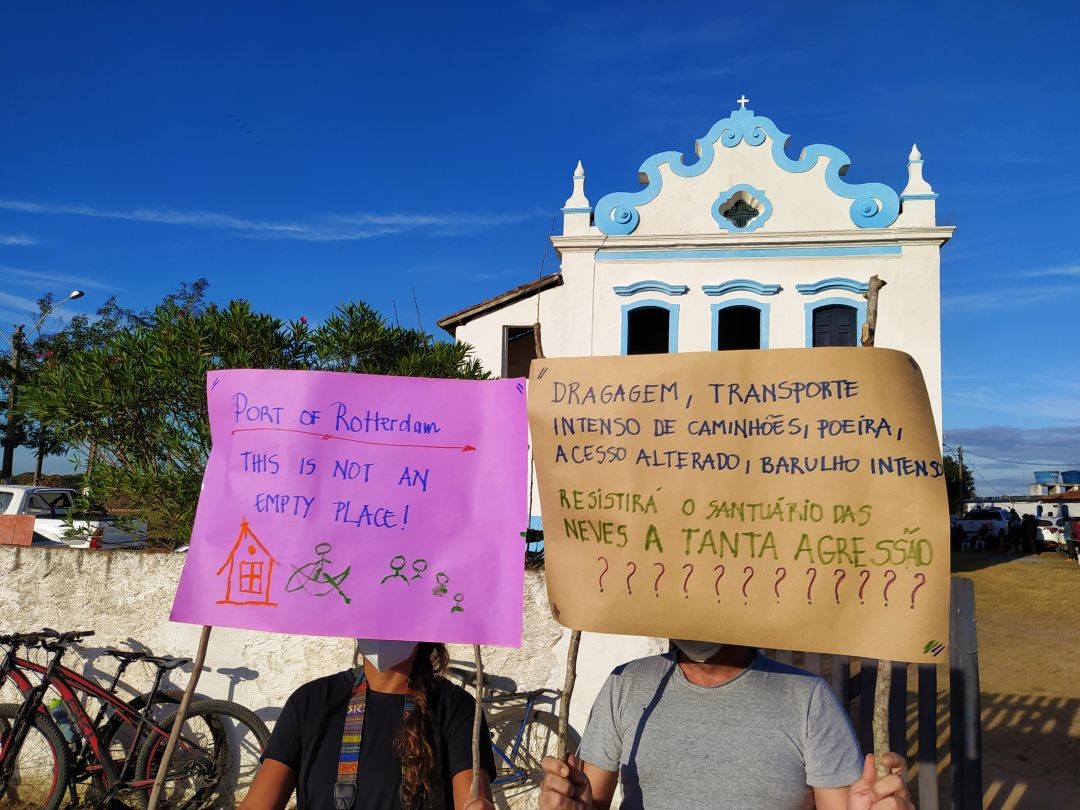 PORT OF Rotterdam
THIS IS NOT AN
EMPTY PLACE!
DRAGAGEM, TRANSPORTE
INTENSO DE CAMINHÕES, POEIRA,
ACESSO ALTERADO, BARULHO INTENSO
RESISTIRÁ O SANTUÁRIO DAS
NEVES A TANTA AGRESSÃO
???????????